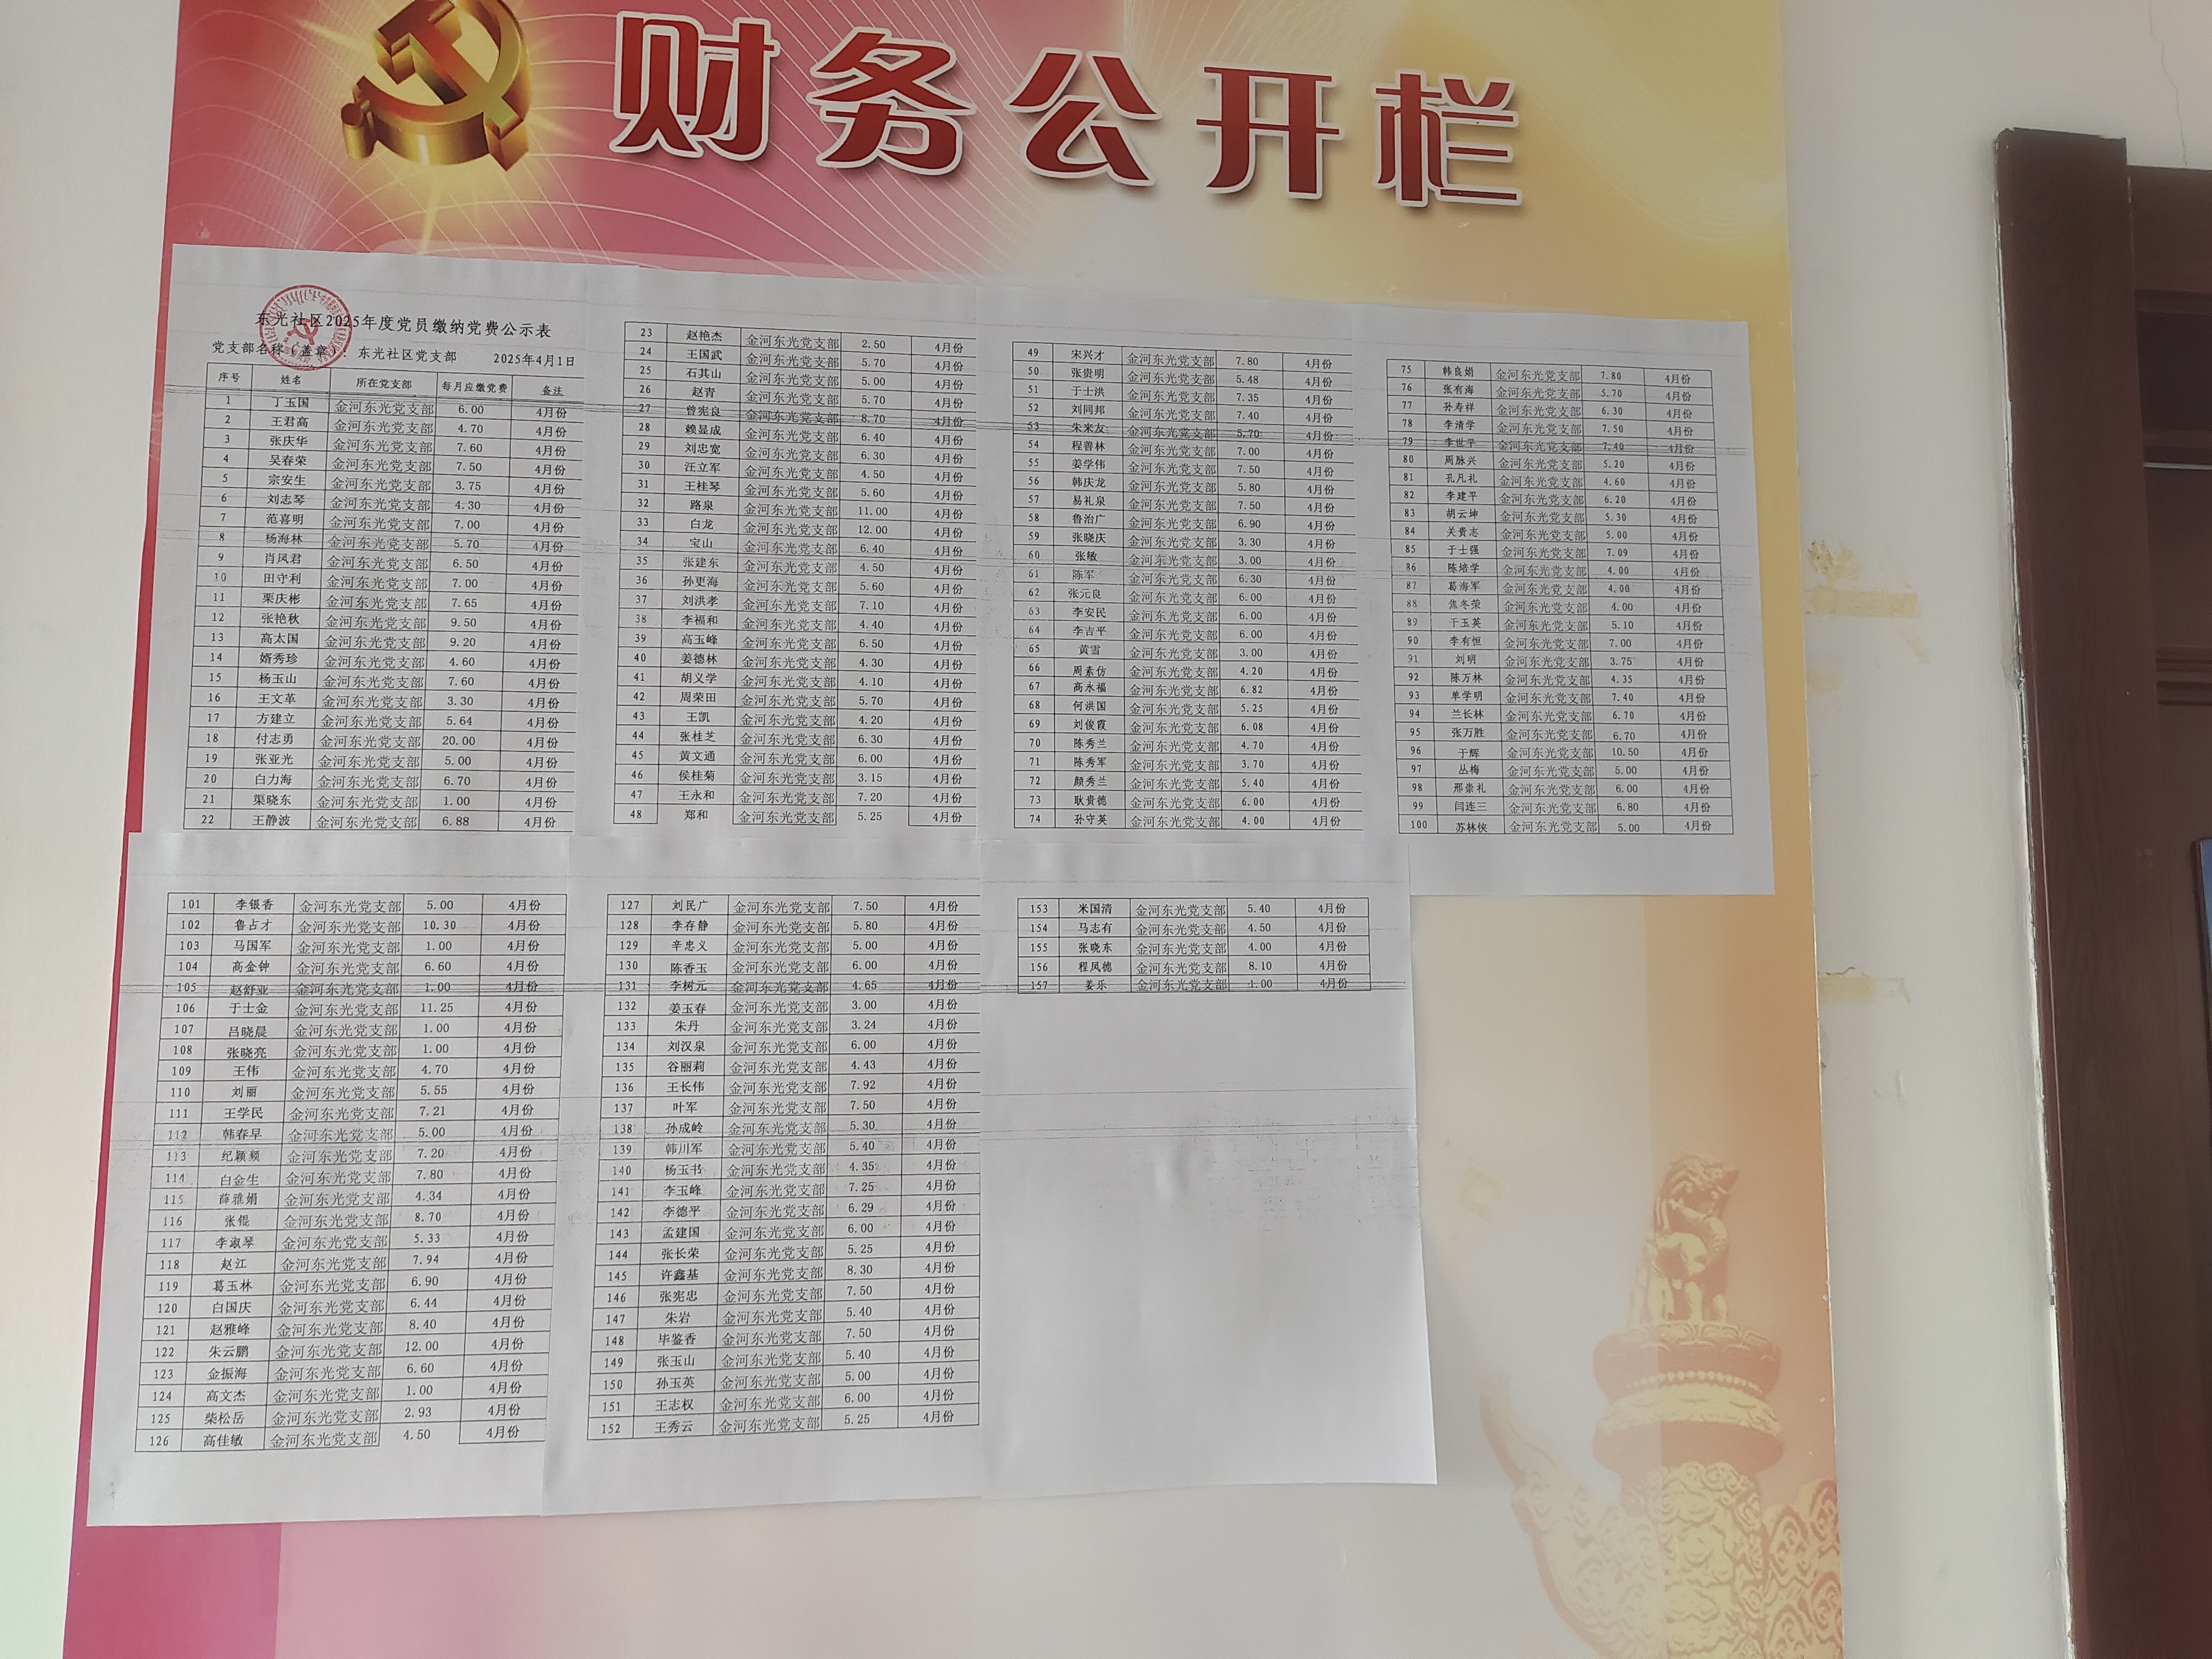 财务公开栏
东光社区2025年度党员缴纳党费公示表
党支部名称（盖章）：东光社区党支部 2025年4月1日
序号 姓名 所在党支部 每月应缴党费 备注
1 丁玉国 金河东光党支部 6.00 4月份
2 王君高 金河东光党支部 4.70 4月份
3 张庆华 金河东光党支部 7.60 4月份
4 吴春荣 金河东光党支部 7.50 4月份
5 宗安生 金河东光党支部 3.75 4月份
6 刘志琴 金河东光党支部 4.30 4月份
7 范喜明 金河东光党支部 7.00 4月份
8 杨海林 金河东光党支部 5.70 4月份
9 肖凤君 金河东光党支部 6.50 4月份
10 田守利 金河东光党支部 7.00 4月份
11 栗庆彬 金河东光党支部 7.65 4月份
12 张艳秋 金河东光党支部 9.50 4月份
13 高太国 金河东光党支部 9.20 4月份
14 婿秀珍 金河东光党支部 4.60 4月份
15 杨玉山 金河东光党支部 7.60 4月份
16 王文革 金河东光党支部 3.30 4月份
17 方建立 金河东光党支部 5.64 4月份
18 付志勇 金河东光党支部 20.00 4月份
19 张亚光 金河东光党支部 5.00 4月份
20 白力海 金河东光党支部 6.70 4月份
21 渠晓东 金河东光党支部 1.00 4月份
22 王静波 金河东光党支部 6.88 4月份
23 赵艳杰 金河东光党支部 2.50 4月份
24 王国武 金河东光党支部 5.70 4月份
25 石其山 金河东光党支部 5.00 4月份
26 赵青 金河东光党支部 5.70 4月份
27 曾宪良 金河东光党支部 8.70 4月份
28 赖显成 金河东光党支部 6.40 4月份
29 刘忠宽 金河东光党支部 6.30 4月份
30 汪立军 金河东光党支部 4.50 4月份
31 王桂琴 金河东光党支部 5.60 4月份
32 路泉 金河东光党支部 11.00 4月份
33 白龙 金河东光党支部 12.00 4月份
34 宝山 金河东光党支部 6.40 4月份
35 张建东 金河东光党支部 4.50 4月份
36 孙更海 金河东光党支部 5.60 4月份
37 刘洪孝 金河东光党支部 7.10 4月份
38 李福和 金河东光党支部 4.40 4月份
39 高玉峰 金河东光党支部 6.50 4月份
40 姜德林 金河东光党支部 4.30 4月份
41 胡义学 金河东光党支部 4.10 4月份
42 周荣田 金河东光党支部 5.70 4月份
43 王凯 金河东光党支部 4.20 4月份
44 张桂芝 金河东光党支部 6.30 4月份
45 黄文通 金河东光党支部 6.00 4月份
46 侯桂菊 金河东光党支部 3.15 4月份
47 王永和 金河东光党支部 7.20 4月份
48 郑和 金河东光党支部 5.25 4月份
49 宋兴才 金河东光党支部 7.80 4月份
50 张贵明 金河东光党支部 5.48 4月份
51 于士洪 金河东光党支部 7.35 4月份
52 刘同邦 金河东光党支部 7.40 4月份
53 朱来友 金河东光党支部 5.70 4月份
54 程善林 金河东光党支部 7.00 4月份
55 姜学伟 金河东光党支部 7.50 4月份
56 韩庆龙 金河东光党支部 5.80 4月份
57 易礼泉 金河东光党支部 7.50 4月份
58 鲁治广 金河东光党支部 6.90 4月份
59 张晓庆 金河东光党支部 3.30 4月份
60 张敏 金河东光党支部 3.00 4月份
61 陈军 金河东光党支部 6.30 4月份
62 张元良 金河东光党支部 6.00 4月份
63 李安民 金河东光党支部 6.00 4月份
64 李吉平 金河东光党支部 6.00 4月份
65 黄雪 金河东光党支部 3.00 4月份
66 周素仿 金河东光党支部 4.20 4月份
67 高永福 金河东光党支部 6.82 4月份
68 何洪国 金河东光党支部 5.25 4月份
69 刘俊霞 金河东光党支部 6.08 4月份
70 陈秀兰 金河东光党支部 4.70 4月份
71 陈秀军 金河东光党支部 3.70 4月份
72 颜秀兰 金河东光党支部 5.40 4月份
73 耿贵德 金河东光党支部 6.00 4月份
74 孙守英 金河东光党支部 4.00 4月份
75 韩良娟 金河东光党支部 7.80 4月份
76 张有海 金河东光党支部 5.70 4月份
77 孙寿祥 金河东光党支部 6.30 4月份
78 李清学 金河东光党支部 7.50 4月份
79 李世平 金河东光党支部 7.40 4月份
80 周脉兴 金河东光党支部 5.20 4月份
81 孔凡礼 金河东光党支部 4.60 4月份
82 李建平 金河东光党支部 6.20 4月份
83 胡云坤 金河东光党支部 5.30 4月份
84 关贵志 金河东光党支部 5.00 4月份
85 于士强 金河东光党支部 7.09 4月份
86 陈培学 金河东光党支部 4.00 4月份
87 葛海军 金河东光党支部 4.00 4月份
88 焦冬荣 金河东光党支部 4.00 4月份
89 于玉英 金河东光党支部 5.10 4月份
90 李有恒 金河东光党支部 7.00 4月份
91 刘明 金河东光党支部 3.75 4月份
92 陈万林 金河东光党支部 4.35 4月份
93 单学明 金河东光党支部 7.40 4月份
94 兰长林 金河东光党支部 6.70 4月份
95 张万胜 金河东光党支部 6.70 4月份
96 于辉 金河东光党支部 10.50 4月份
97 丛梅 金河东光党支部 5.00 4月份
98 邢崇礼 金河东光党支部 6.00 4月份
99 闫连三 金河东光党支部 6.80 4月份
100 苏林侠 金河东光党支部 5.00 4月份
101 李银香 金河东光党支部 5.00 4月份
102 鲁占才 金河东光党支部 10.30 4月份
103 马国军 金河东光党支部 1.00 4月份
104 高金钟 金河东光党支部 6.60 4月份
105 赵舒亚 金河东光党支部 1.00 4月份
106 于士金 金河东光党支部 11.25 4月份
107 吕晓晨 金河东光党支部 1.00 4月份
108 张晓亮 金河东光党支部 1.00 4月份
109 王伟 金河东光党支部 4.70 4月份
110 刘丽 金河东光党支部 5.55 4月份
111 王学民 金河东光党支部 7.21 4月份
112 韩春早 金河东光党支部 5.00 4月份
113 纪颖频 金河东光党支部 7.20 4月份
114 白金生 金河东光党支部 7.80 4月份
115 薛雅娟 金河东光党支部 4.34 4月份
116 张锟 金河东光党支部 8.70 4月份
117 李淑琴 金河东光党支部 5.33 4月份
118 赵江 金河东光党支部 7.94 4月份
119 葛玉林 金河东光党支部 6.90 4月份
120 白国庆 金河东光党支部 6.44 4月份
121 赵雅峰 金河东光党支部 8.40 4月份
122 朱云鹏 金河东光党支部 12.00 4月份
123 金振海 金河东光党支部 6.60 4月份
124 高文杰 金河东光党支部 1.00 4月份
125 柴松岳 金河东光党支部 2.93 4月份
126 高佳敏 金河东光党支部 4.50 4月份
127 刘民广 金河东光党支部 7.50 4月份
128 李存静 金河东光党支部 5.80 4月份
129 辛忠义 金河东光党支部 5.00 4月份
130 陈香玉 金河东光党支部 6.00 4月份
131 李树元 金河东光党支部 4.65 4月份
132 姜玉春 金河东光党支部 3.00 4月份
133 朱丹 金河东光党支部 3.24 4月份
134 刘汉泉 金河东光党支部 6.00 4月份
135 谷丽莉 金河东光党支部 4.43 4月份
136 王长伟 金河东光党支部 7.92 4月份
137 叶军 金河东光党支部 7.50 4月份
138 孙成岭 金河东光党支部 5.30 4月份
139 韩川军 金河东光党支部 5.40 4月份
140 杨玉书 金河东光党支部 4.35 4月份
141 李玉峰 金河东光党支部 7.25 4月份
142 李德平 金河东光党支部 6.29 4月份
143 孟建国 金河东光党支部 6.00 4月份
144 张长荣 金河东光党支部 5.25 4月份
145 许鑫基 金河东光党支部 8.30 4月份
146 张宪忠 金河东光党支部 7.50 4月份
147 朱岩 金河东光党支部 5.40 4月份
148 毕鉴香 金河东光党支部 7.50 4月份
149 张玉山 金河东光党支部 5.40 4月份
150 孙玉英 金河东光党支部 5.00 4月份
151 王志权 金河东光党支部 6.00 4月份
152 王秀云 金河东光党支部 5.25 4月份
153 米国清 金河东光党支部 5.40 4月份
154 马志有 金河东光党支部 4.50 4月份
155 张晓东 金河东光党支部 4.00 4月份
156 程凤德 金河东光党支部 8.10 4月份
157 姜乐 金河东光党支部 1.00 4月份